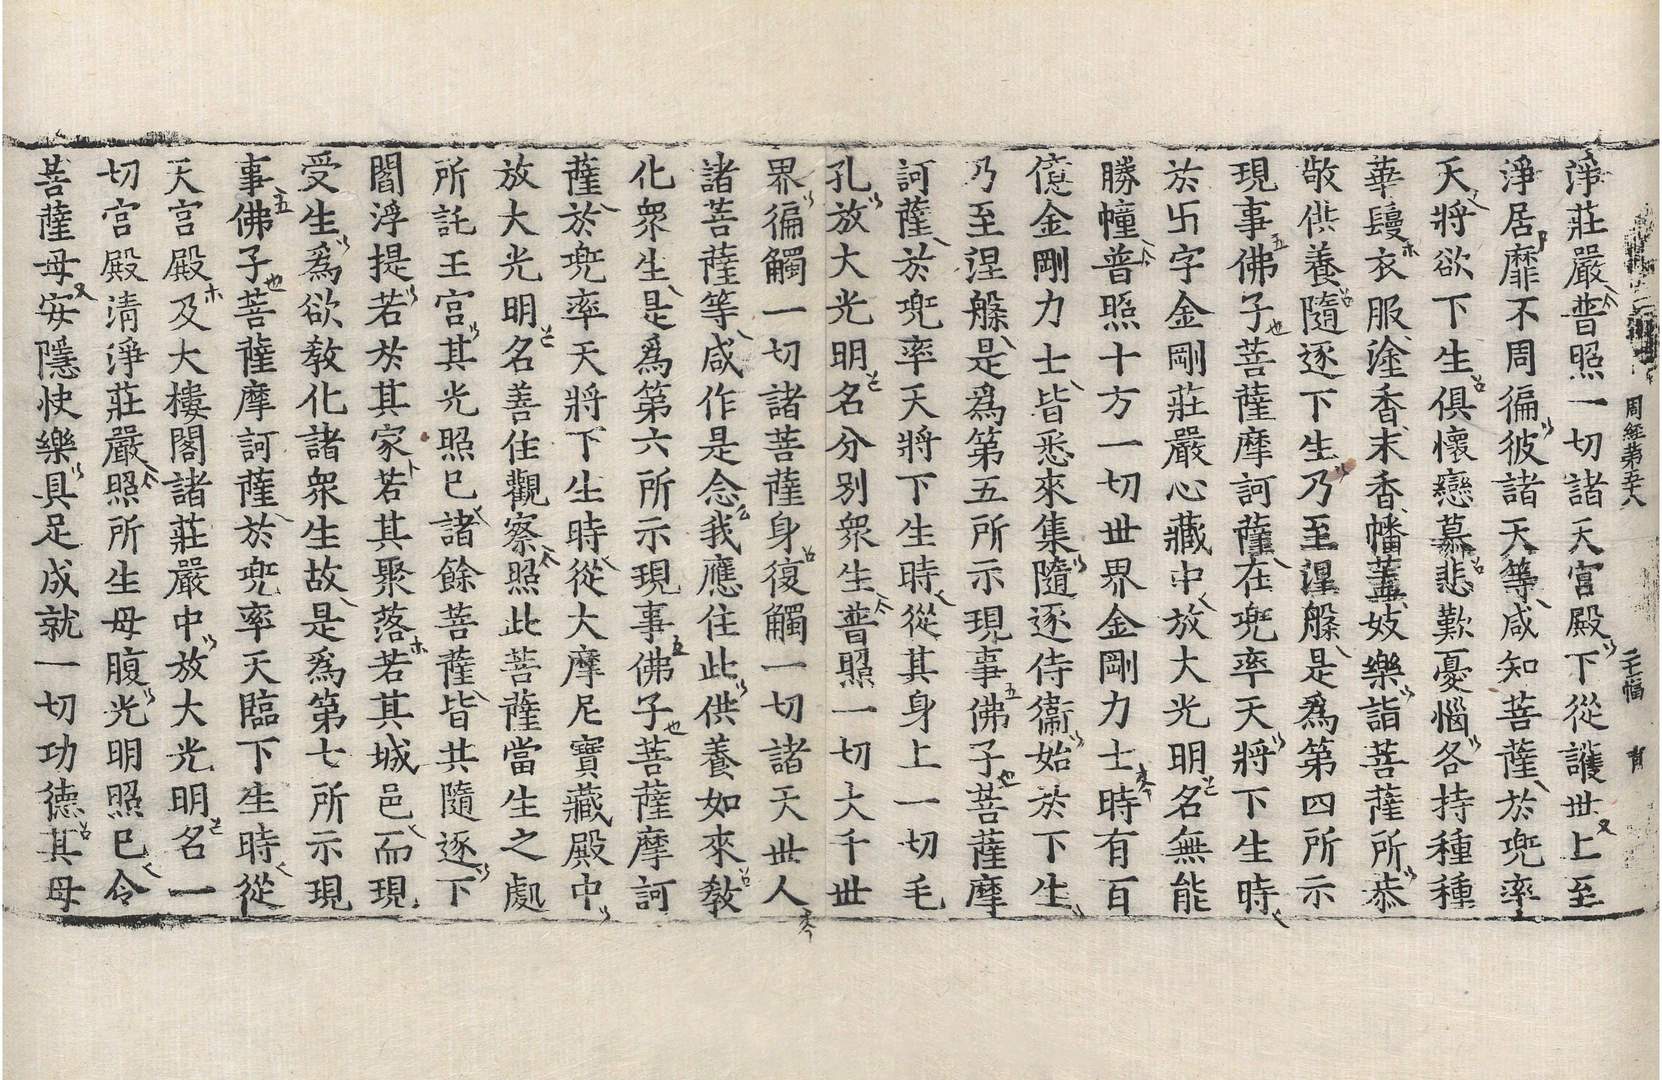 周經第五八　二十一幅　有
淨莊嚴普照一切諸天宮殿下從護世上至
淨居靡不周徧彼諸天等咸知菩薩於兜率
天將欲下生俱懷戀慕悲歎憂惱各持種種
華鬘衣服塗香末香幡蓋妓樂詣菩薩所恭
敬供養隨逐下生乃至涅槃是爲第四所示
現事佛子菩薩摩訶薩在兜率天將下生時
於卐字金剛莊嚴心藏中放大光明名無能
勝幢普照十方一切世界金剛力士時有百
億金剛力士皆悉來集隨逐侍衞始於下生
乃至涅槃是爲第五所示現事佛子菩薩摩
訶薩於兜率天將下生時從其身上一切毛
孔放大光明名分別衆生普照一切大千世
界徧觸一切諸菩薩身復觸一切諸天世人
諸菩薩等咸作是念我應住此供養如來敎
化衆生是爲第六所示現事佛子菩薩摩訶
薩於兜率天將下生時從大摩尼寶藏殿中
放大光明名善住觀察照此菩薩當生之處
所託王宮其光照已諸餘菩薩皆共隨逐下
閻浮提若於其家若其聚落若其城邑而現
受生爲欲敎化諸衆生故是爲第七所示現
事佛子菩薩摩訶薩於兜率天臨下生時從
天宮殿及大樓閣諸莊嚴中放大光明名一
切宮殿清淨莊嚴照所生母腹光明照已令
菩薩母安隱快樂具足成就一切功德其母